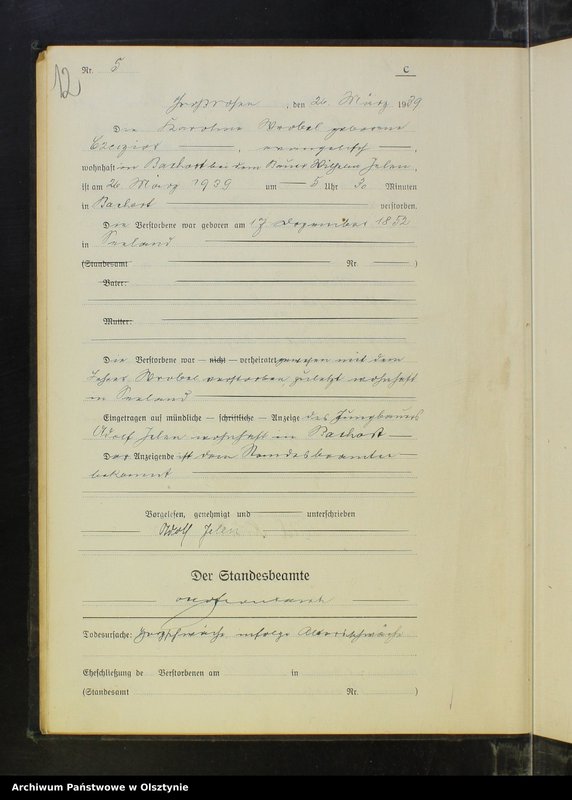 12
Nr. 5
C
Großrosen, den 26. März 1939
Die Karoline Wrobel geborene
Czygior, evangelisch,
wohnhaft in Bachort bei dem Bauer Wilhelm Jelen,
ist am 26. März 1939 um 5 Uhr 30 Minuten
in Bachort verstorben.
Die Verstorbene war geboren am 17 Dezember 1852
in Seeland
(Standesamt Nr. )
Vater:
Mutter:
Die Verstorbene war — nicht — verheiratet gewesen mit dem
Wrobel verstorben, zuletzt wohnhaft
in Seeland
Eingetragen auf mündliche — schriftliche — Anzeige des Jungbauers
Adolf Jelen wohnhaft in Bachort
Der Anzeigende ist dem Standesbeamten
bekannt
Vorgelesen, genehmigt und unterschrieben
Adolf Jelen
Der Standesbeamte
Todesursache: Herzschwäche infolge Altersschwäche
Eheschließung de Verstorbenen am in
(Standesamt Nr. )
Archiwum Państwowe w Olsztynie